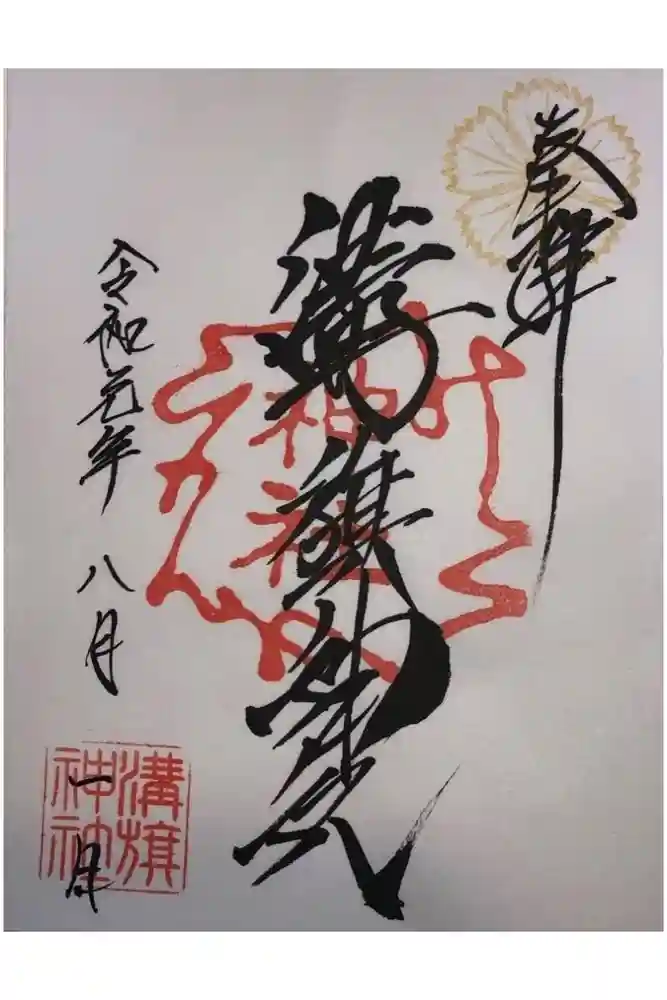 奉拝
溝旗神社
神社
令和元年八月一日
溝旗神社